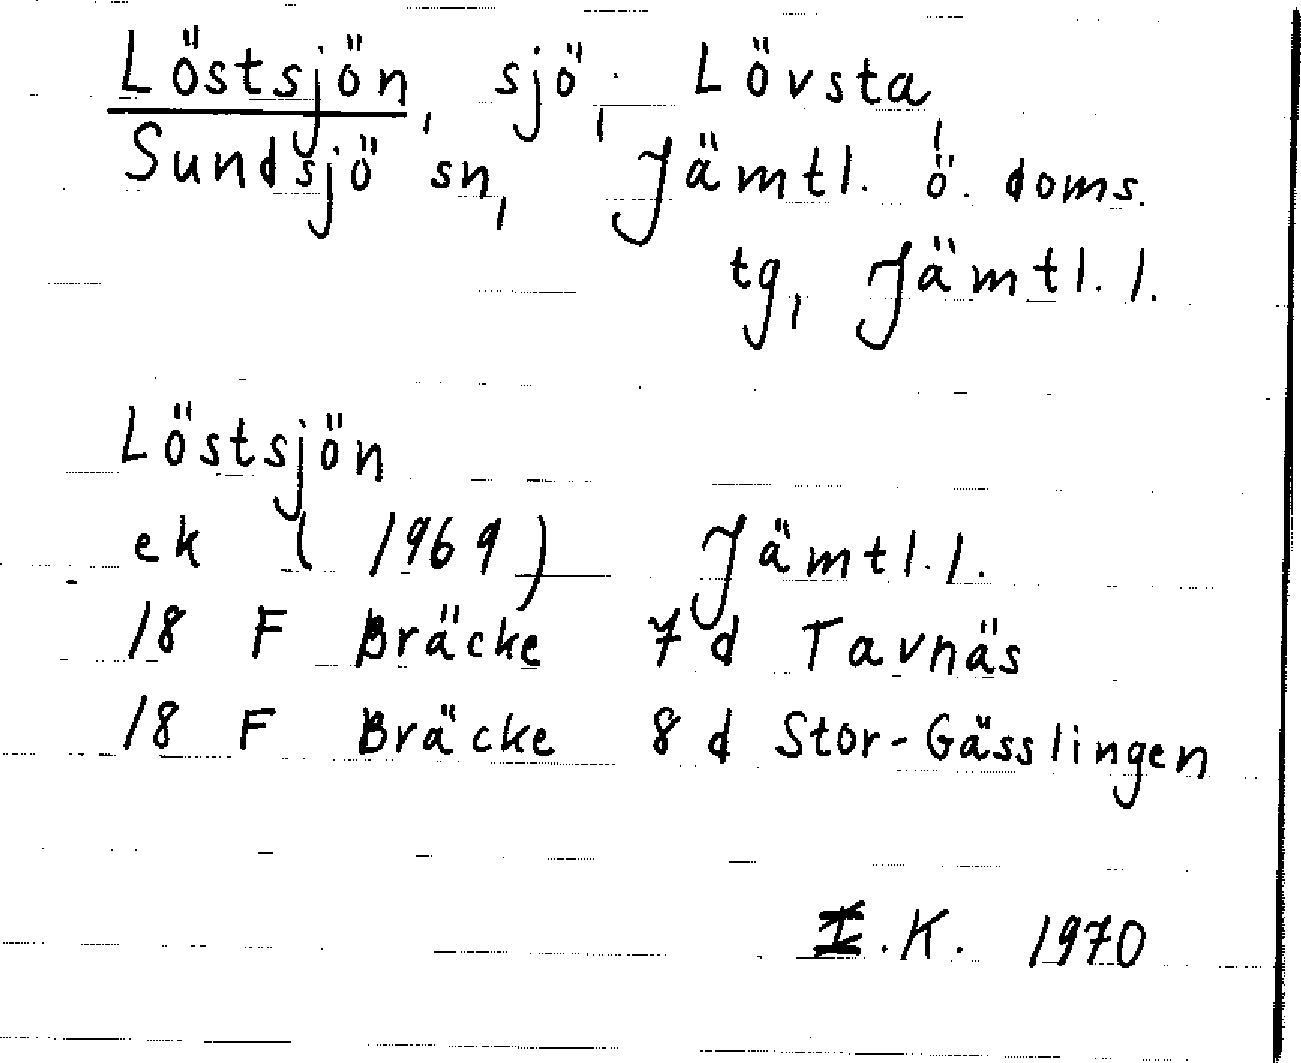 Löstsjön, sjö, Lövsta,
Sundsjö sn, Jämtl. ö. doms.
tg, Jämtl. l.
Löstsjön
ek (1969) Jämtl. l.
18 F Bräcke 7 d Tavnäs
18 F Bräcke 8 d Stor-Gässlingen
I.K. 1970